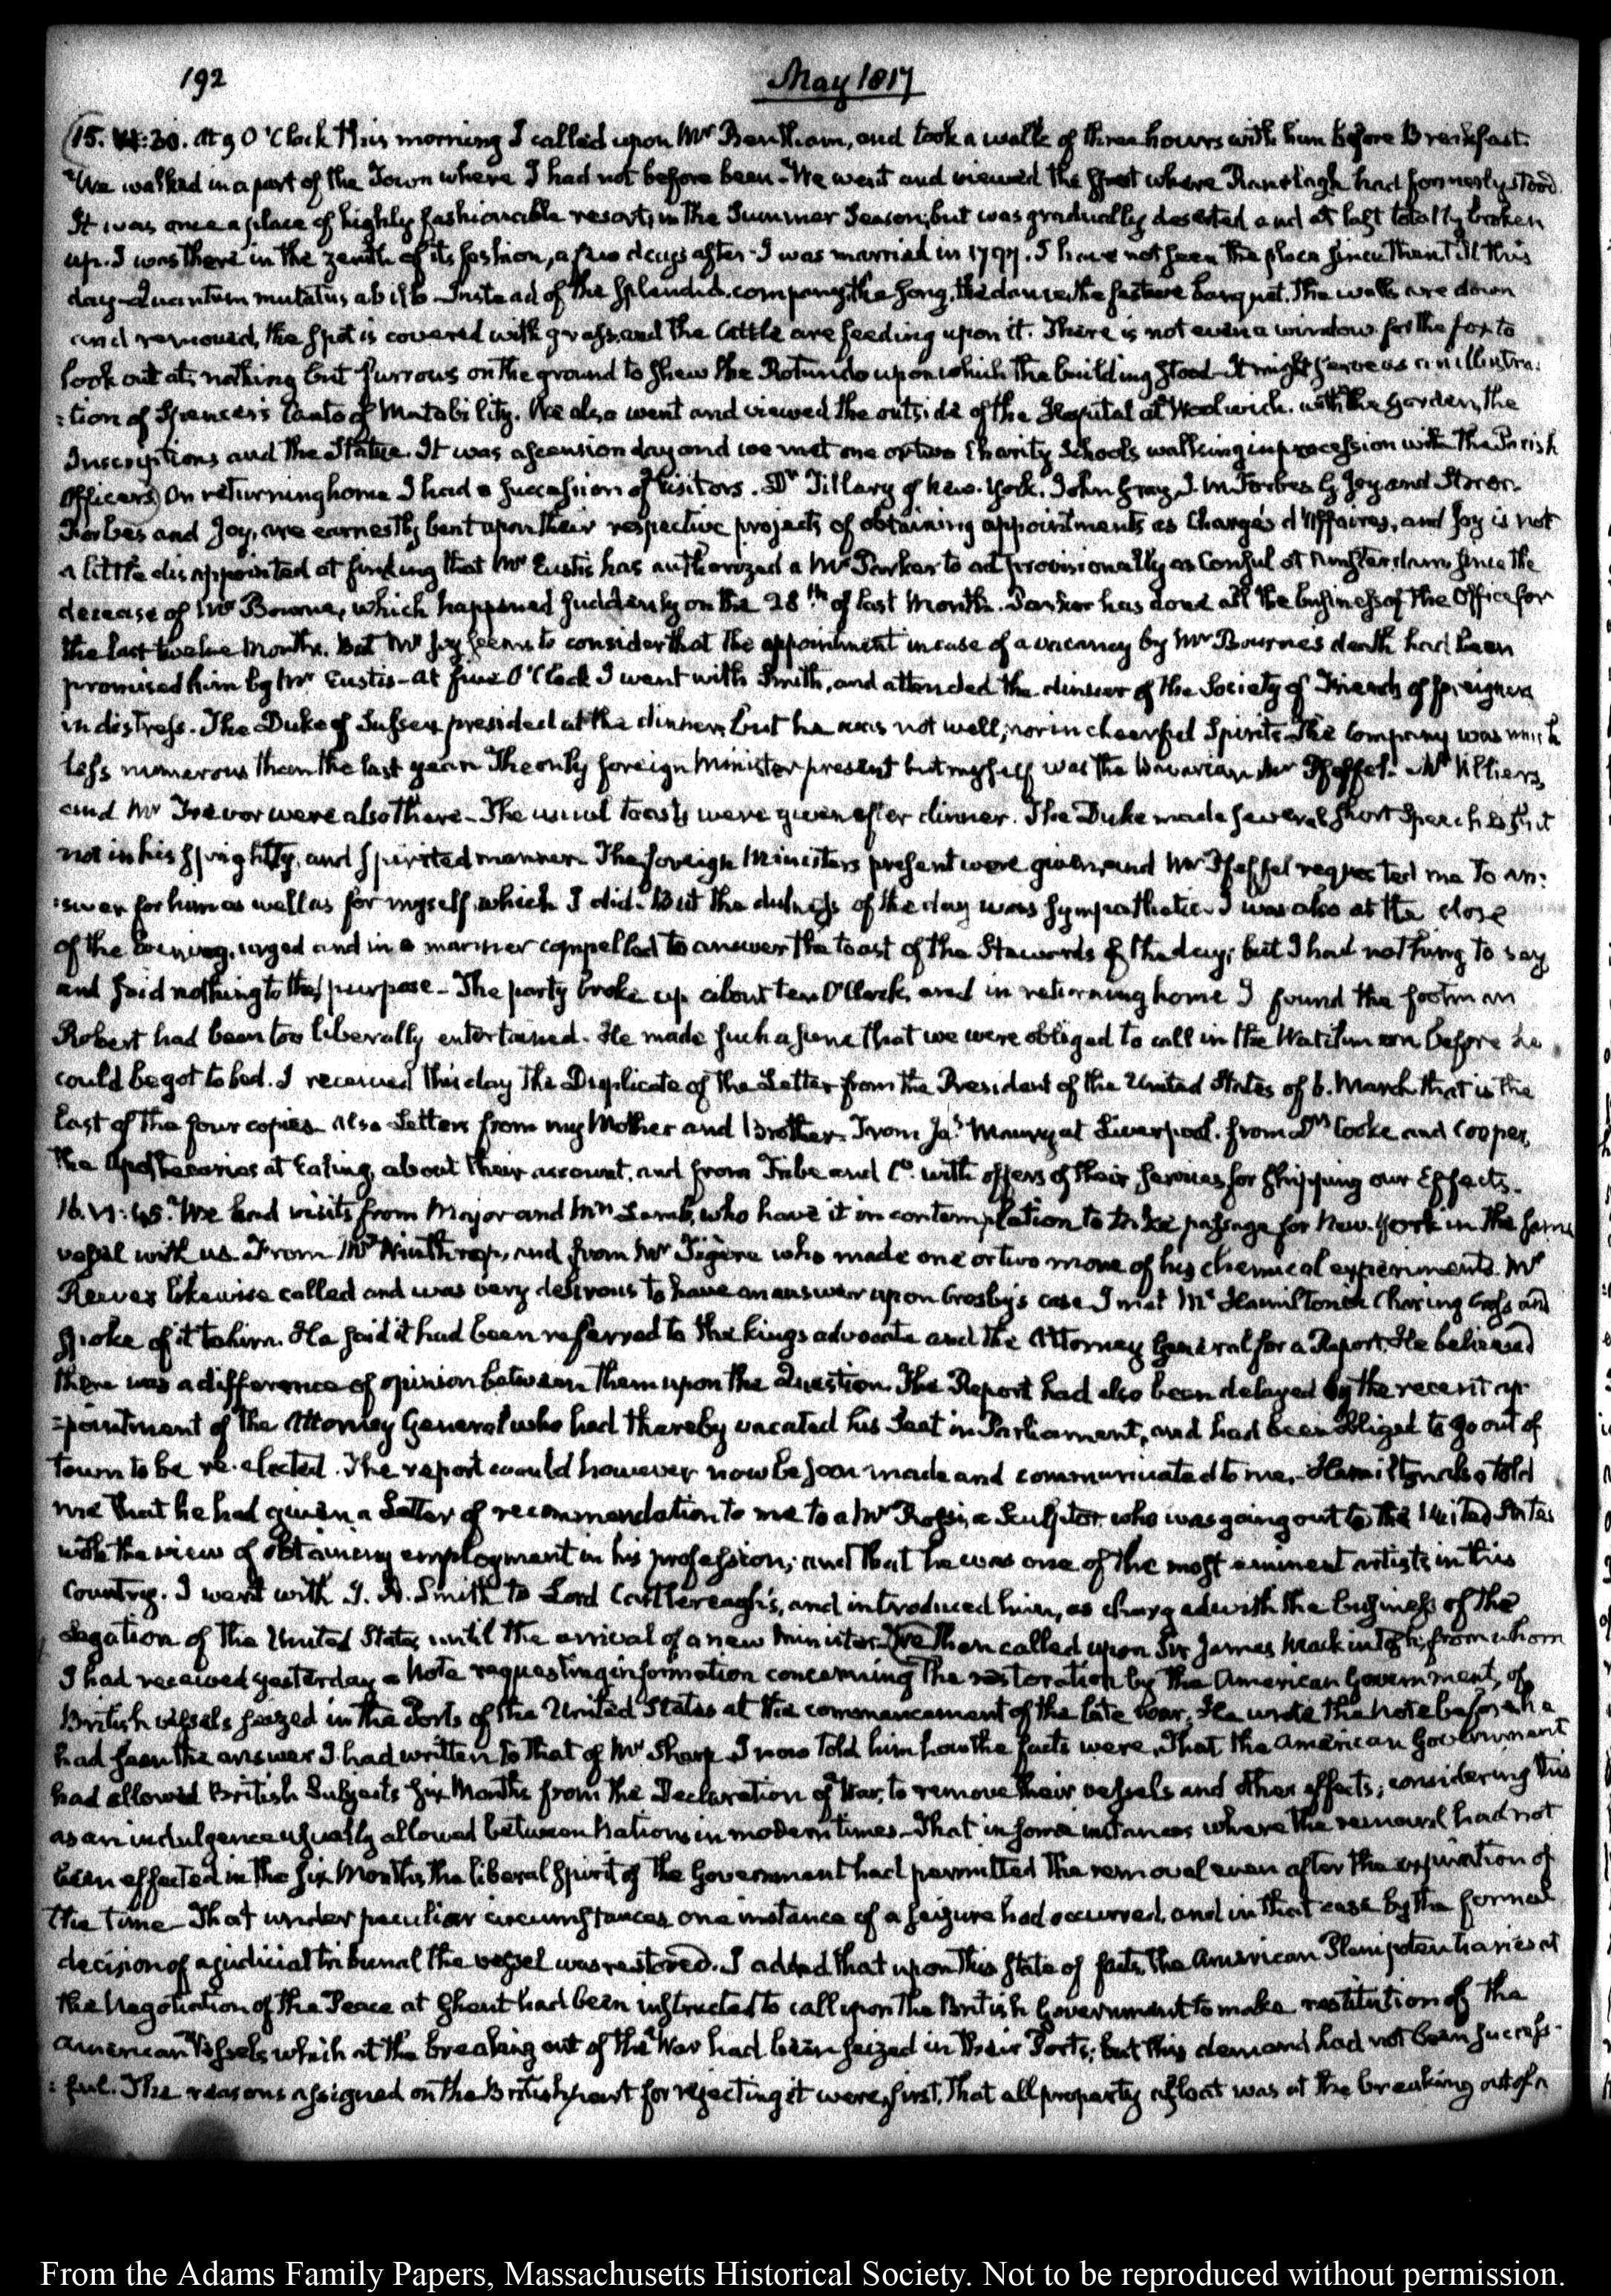 192
May 1817
15. VI:30. At 9 O'Clock this morning I called upon Mr Bentham, and took a walk of three hours with him before Breakfast.
We walked in a part of the Town where I had not before been - We went and viewed the spot where Ranelagh had formerly stood.
It was once a place of highly fashionable resort, in the Summer Season, but was gradually deserted and at last totally broken
up. I was there in the zenith of its fashion, a few days after I was married in 1797. I have not seen the place since then till this
day - Quantum mutatus ab illo - Instead of the splendid company, the song, the dance, the festive banquet. The walls are down
and removed, the spot is covered with grass, and the Cattle are feeding upon it. There is not even a window for the fox to
look out at; nothing but furrows on the ground to shew the Rotundo upon which the building stood - It might serve as an illustra:
:tion of Spencer's Canto of Mutability. We also went and viewed the outside of the Hospital at Woolwich. with the Garden, the
Inscriptions and the Statue. It was ascension day and we met one or two Charity Schools walking in procession with the Parish
Officers) On returning home I had a succession of Visitors. Dr Tillary of New-York. John Gray, J. M. Forbes G. Joy and Storer.
Forbes and Joy, are earnestly bent upon their respective projects of obtaining appointments as Chargés d'Affaires, and Joy is not
a little disappointed at finding that Mr Eustis has authorized a Mr Parker to act provisionally as Consul at Amsterdam since the
decease of Mr Bourne, which happened suddenly on the 28th of last Month. Parker has done all the business of the Office for
the last twelve Months. But Mr Joy seems to consider that the appointment in case of a vacancy by Mr Bourne's death had been
promised him by Mr Eustis - At five O'Clock I went with Smith, and attended the dinner of the Society of Friends of foreigners
in distress. The Duke of Sussex presided at the dinner, but he was not well, nor in cheerful Spirits - The Company was much
less numerous than the last year. The only foreign Minister present but myself was the Bavarian Mr Pfeffel. Mr Villiers,
and Mr Trevor were also there - The usual toasts were given after dinner. The Duke made several short Speeches, but
not in his sprightly, and spirited manner. The foreign Ministers present were given, and Mr Pfeffel requested me to an:
:swer for him as well as for myself, which I did. But the dulness of the day was sympathetic - I was also at the close
of the Evening, urged and in a manner compelled to answer the toast of the Stewards of the day; but I had nothing to say
and said nothing to the purpose - The party broke up about ten O'Clock, and in returning home I found the footman
Robert had been too liberally entertained. He made such a scene that we were obliged to call in the Watchman before he
could be got to bed. I received this day the Duplicate of the Letter from the President of the United States of 6. March that is the
last of the four copies. Also Letters from my Mother and Brother. From Jas Maury at Liverpool. from Drs Cooke and Cooper,
the Apothecaries at Ealing, about their account, and from Tribe and Co. with offers of their services for shipping our Effects.
16. VI:45. We had visits from Major and Mrs Lamb, who have it in contemplation to take passage for New-York in the same
vessel with us. From Mr Winthrop, and from Mr Tigere who made one or two more of his chemical experiments. Mr
Reeves likewise called and was very desirous to have an answer upon Crosby's case I met Mr Hamilton at Charing Cross and
spoke of it to him. He said it had been referred to the kings advocate and the Attorney General for a Report. He believed
there was a difference of opinion between them upon the Question. The Report had also been delayed by the recent ap
:pointment of the Attorney General who had thereby vacated his Seat in Parliament, and had been obliged to go out of
town to be re-elected. The report would however now be soon made and communicated to me. Hamilton also told
me that he had given a Letter of recommendation to me to a Mr Rossi, a Sculptor, who was going out to the United States
with the view of obtaining employment in his profession; and that he was one of the most eminent artists in this
Country. I went with J. A. Smith to Lord Castlereagh's, and introduced him, as charged with the business of the
Legation of the United States, until the arrival of a new Minister. (We then called upon Sir James Mackintosh, from whom
I had received yesterday a Note requesting information concerning the restoration by the American Government, of
British vessels seized in the Ports of the United States at the commencement of the late war; He wrote the note before he
had seen the answer I had written to that of Mr Sharp. I now told him how the facts were. That the American Government
had allowed British Subjects six Months from the Declaration of War, to remove their vessels and other effects; considering this
as an indulgence usually allowed between Nations in modern times - That in some instances where the removal had not
been effected in the six Months, the liberal Spirit of the Government had permitted the removal even after the expiration of
the time - That under peculiar circumstances one instance of a seizure had occurred, and in that case by the formal
decision of a judicial tribunal the vessel was restored. I added that upon this state of facts, the American Plenipotentiaries at
the Negotiation of the Peace at Ghent had been instructed to call upon the British Government to make restitution of the
American Vessels which at the breaking out of the War had been seized in their Ports; but this demand had not been success-
:ful. The reasons assigned on the British part for rejecting it were, first, That all property afloat was at the breaking out of a
From the Adams Family Papers, Massachusetts Historical Society. Not to be reproduced without permission.